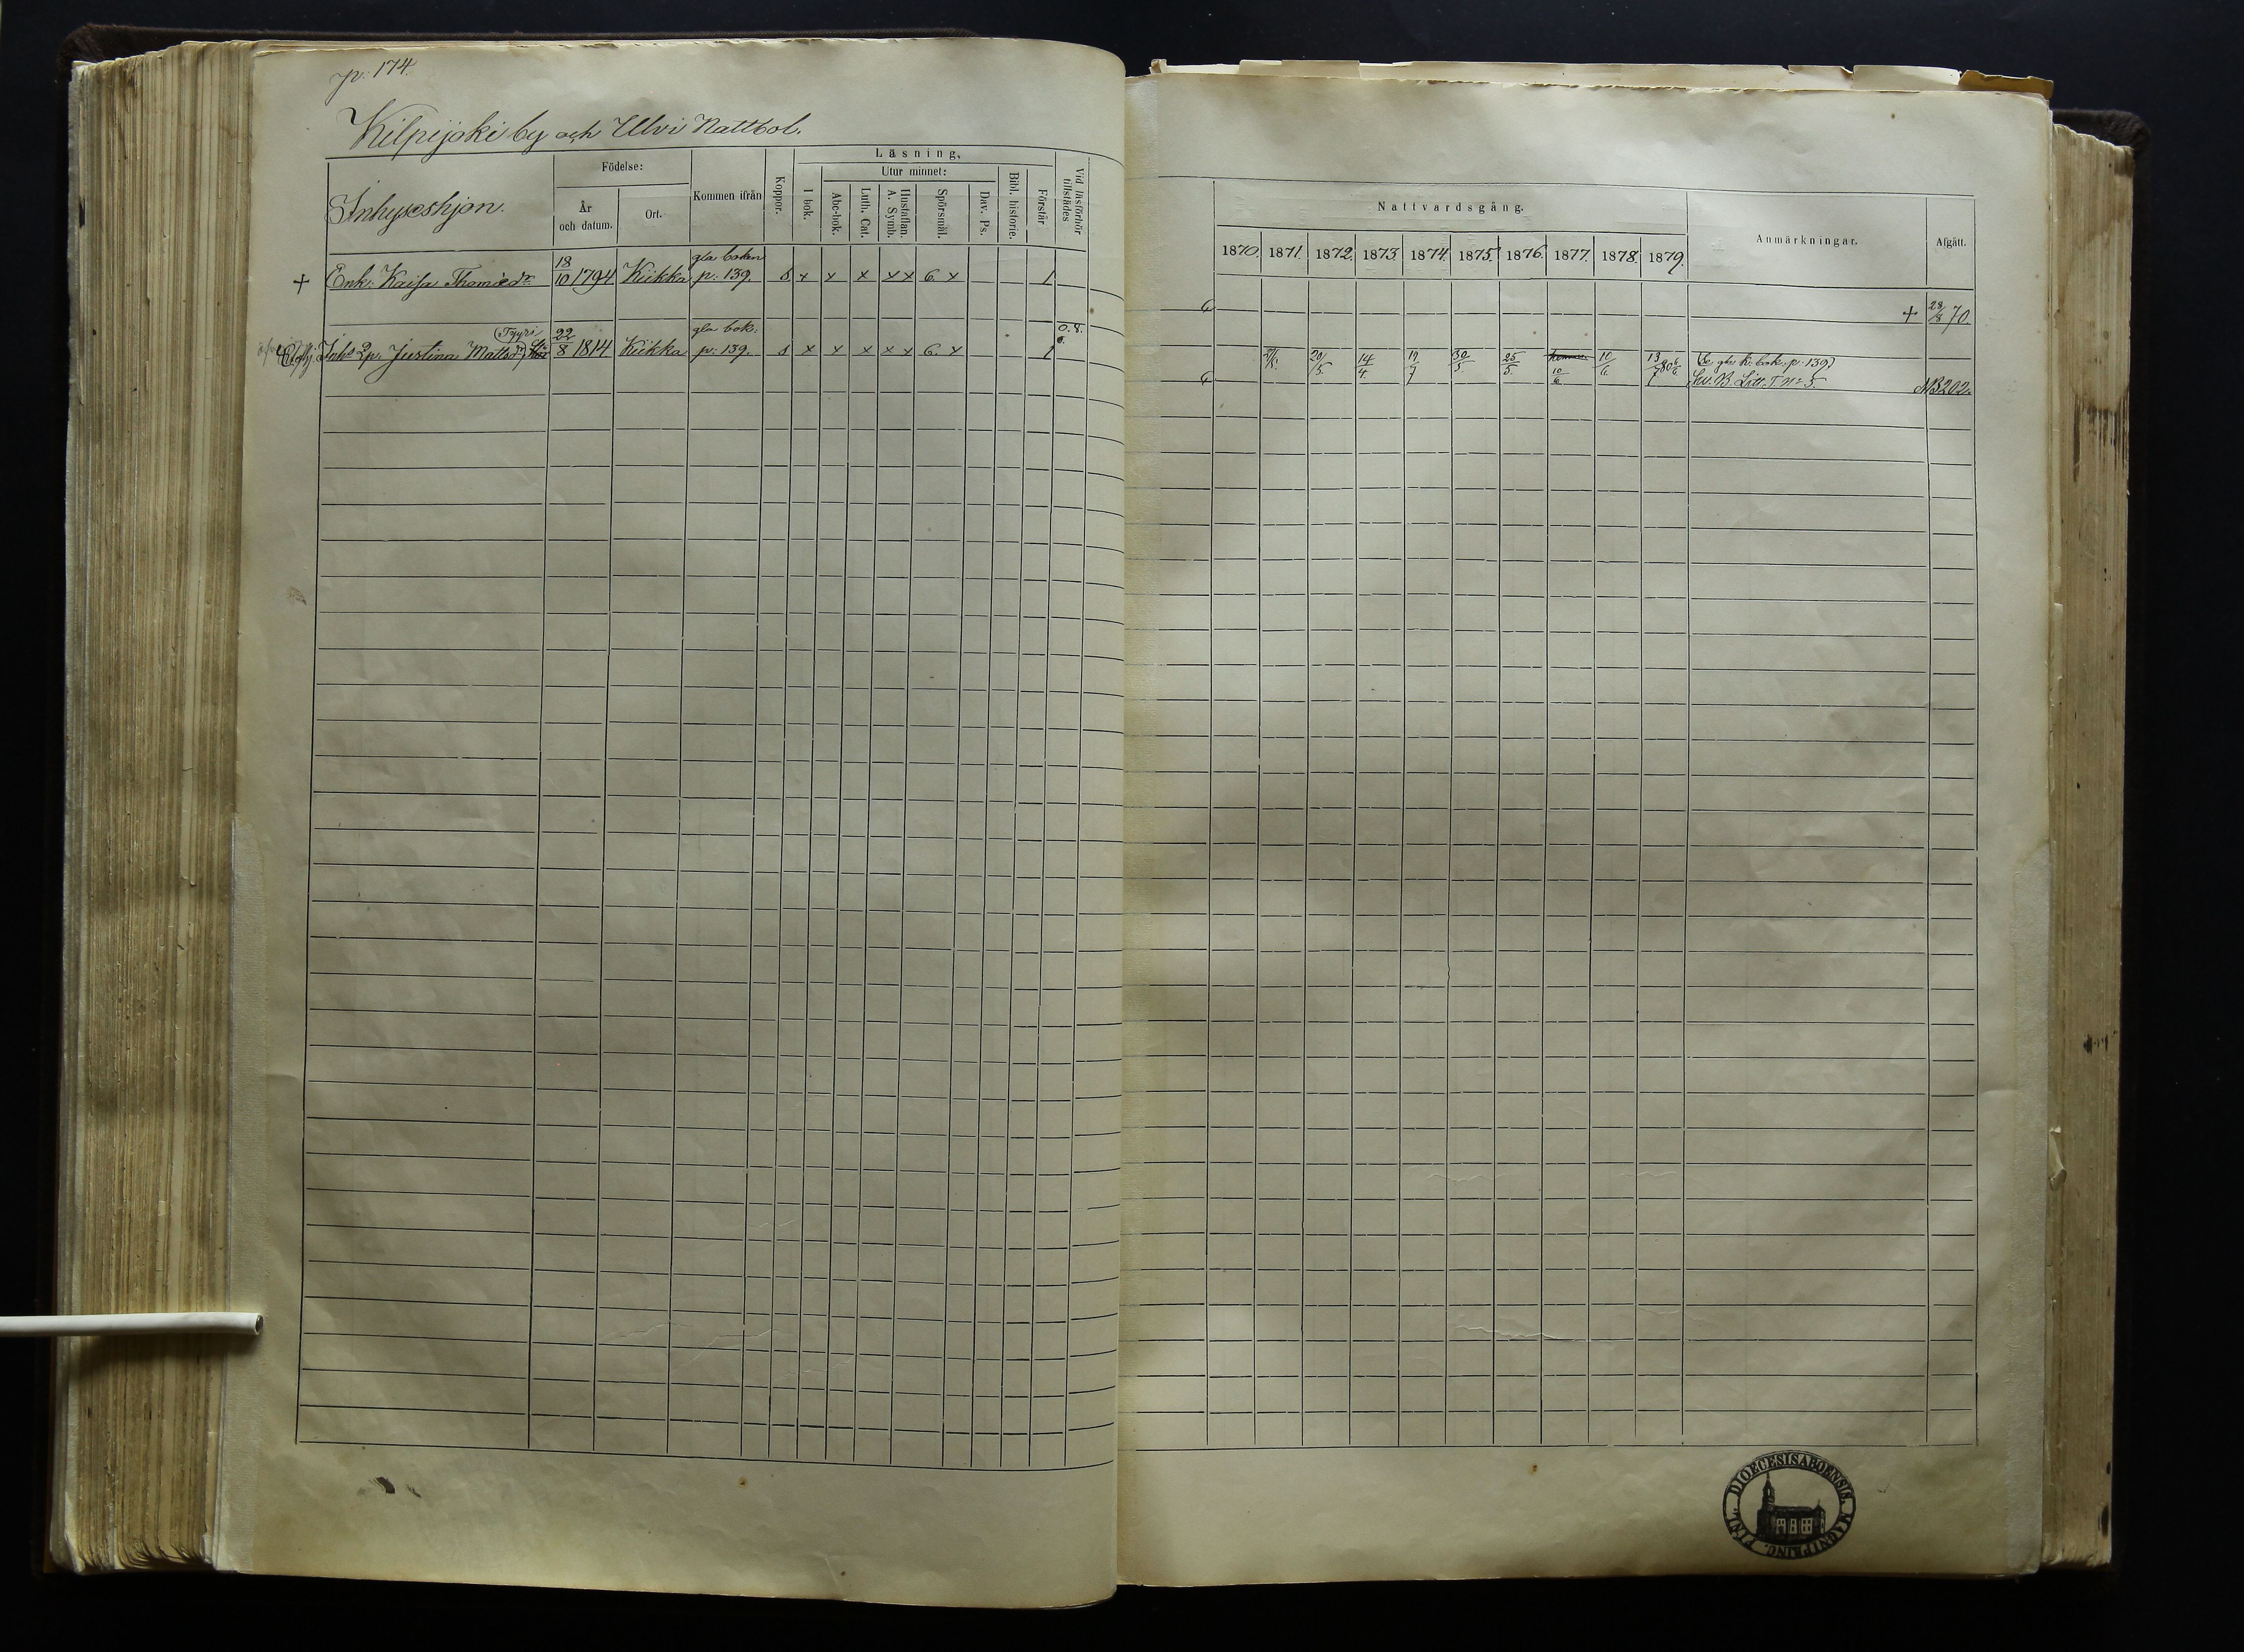 p: 174.
Kilpijoki by och Ulvi Rattbol.
Inhyseshjon.
Födelse:
År och datum.
Ort.
Kommen ifrån
Koppor.
Läsning,
I bok.
Utur minnet:
Abc-bok.
Luth. Cat.
Hustaflan. A. Symb.
Spörsmål.
Dav. Ps.
Bibl. historie.
Förstår
Vid läsförhör tillstädes
Nattvardsgång.
1870. 1871. 1872. 1873. 1874. 1875. 1876. 1877. 1878. 1879.
Anmärkningar.
Afgått.
+ Enk: Kaisa Thomæd:r 18/10 1794 Kiikka gla boken p: 139. s x x x x x 6. x 1 + 28/8 70.
Tyyri
Inhs Justina Mattsd:r 22/8 1814 Kiikka gla bok: p: 139. s x x x x x 6. x 1 0.8. 20/5. 14/4. 19/7 30/5 25/5. 10/6 10/6. 13/7 80 6/6. Se gla k. bok. p: 139)
Litt. T No 5. NB 202.
DIOECESIS ABOENSIS. MAGNI PRINC. FINL.